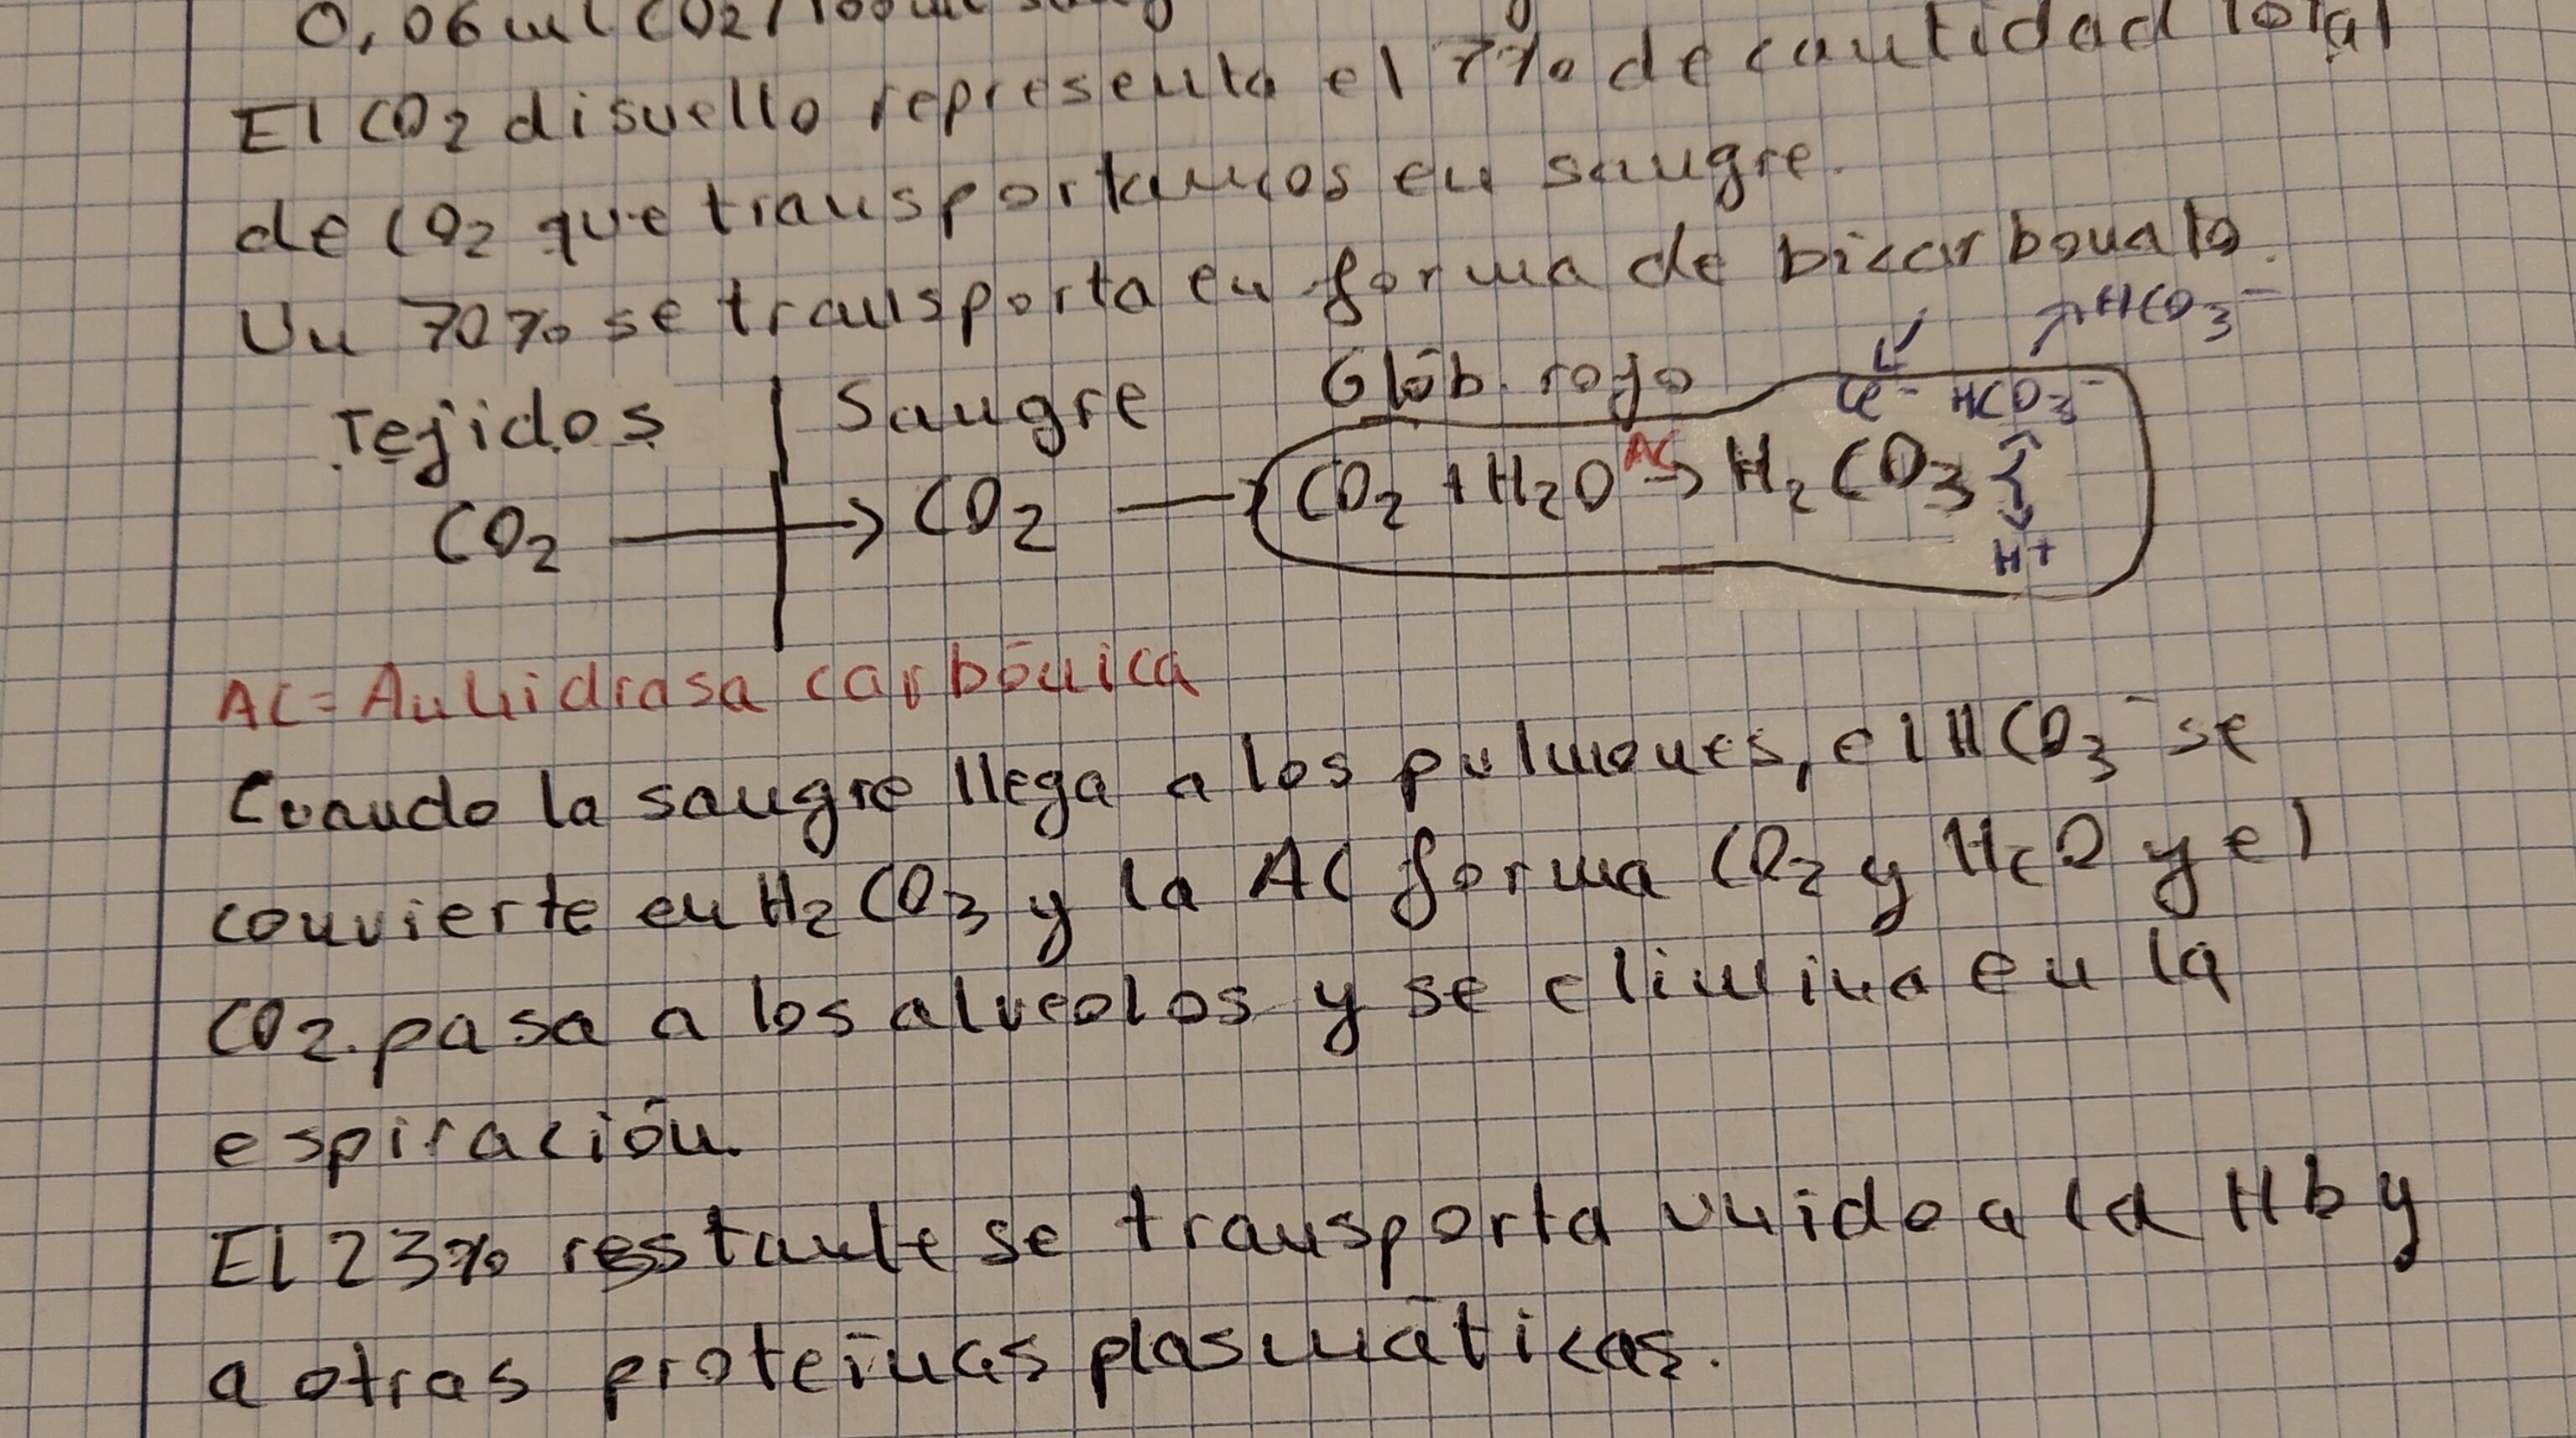 0,06 ml CO2/100ml
El CO2 disuelto representa el 7% de cantidad total
de CO2 que transportamos en sangre.
Un 70% se transporta en forma de bicarbonato.
HCO3-
Tejidos Sangre Glób. rojo Cl- HCO3-
CO2 → CO2 → CO2 + H2O AC→ H2CO3
H+
AC = Anhidrasa carbónica
Cuando la sangre llega a los pulmones, el HCO3- se
convierte en H2CO3 y la AC forma CO2 y H2O y el
CO2 pasa a los alveolos y se elimina en la
espiración.
El 23% restante se transporta unido a la Hb y
a otras proteínas plasmáticas.